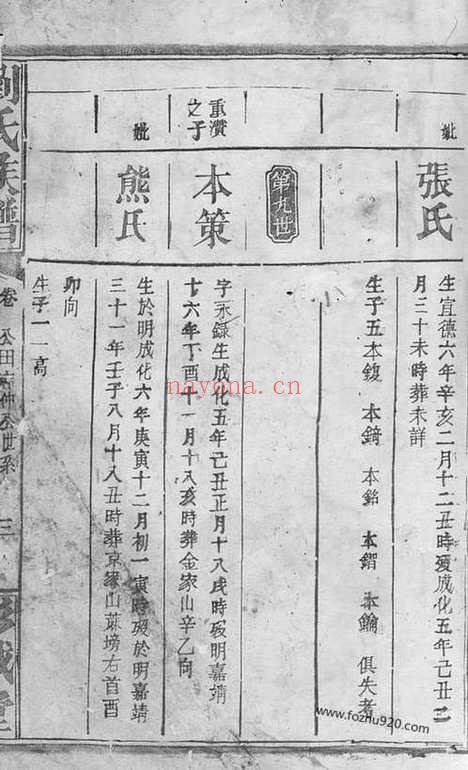 妣
張氏
生宣德六年辛亥二月十二丑時歿成化五年己丑二
月三十未時葬未詳
生子五本鍑 本錡 本銘 本鍇 本鑰 俱失考
第九世
重瓚
之子
本策
字永録生成化五年己丑正月十八戌時歿明嘉靖
十六年丁酉十一月十八亥時葬金家山辛乙向
妣
熊氏
生於明成化六年庚寅十二月初一寅時歿於明嘉靖
三十一年壬子八月十八丑時葬京家山蔴塝右首酉
卯向
生子一一高
劉氏族譜
卷
世系
三
www.nayona.cn
www.fozhu920.com